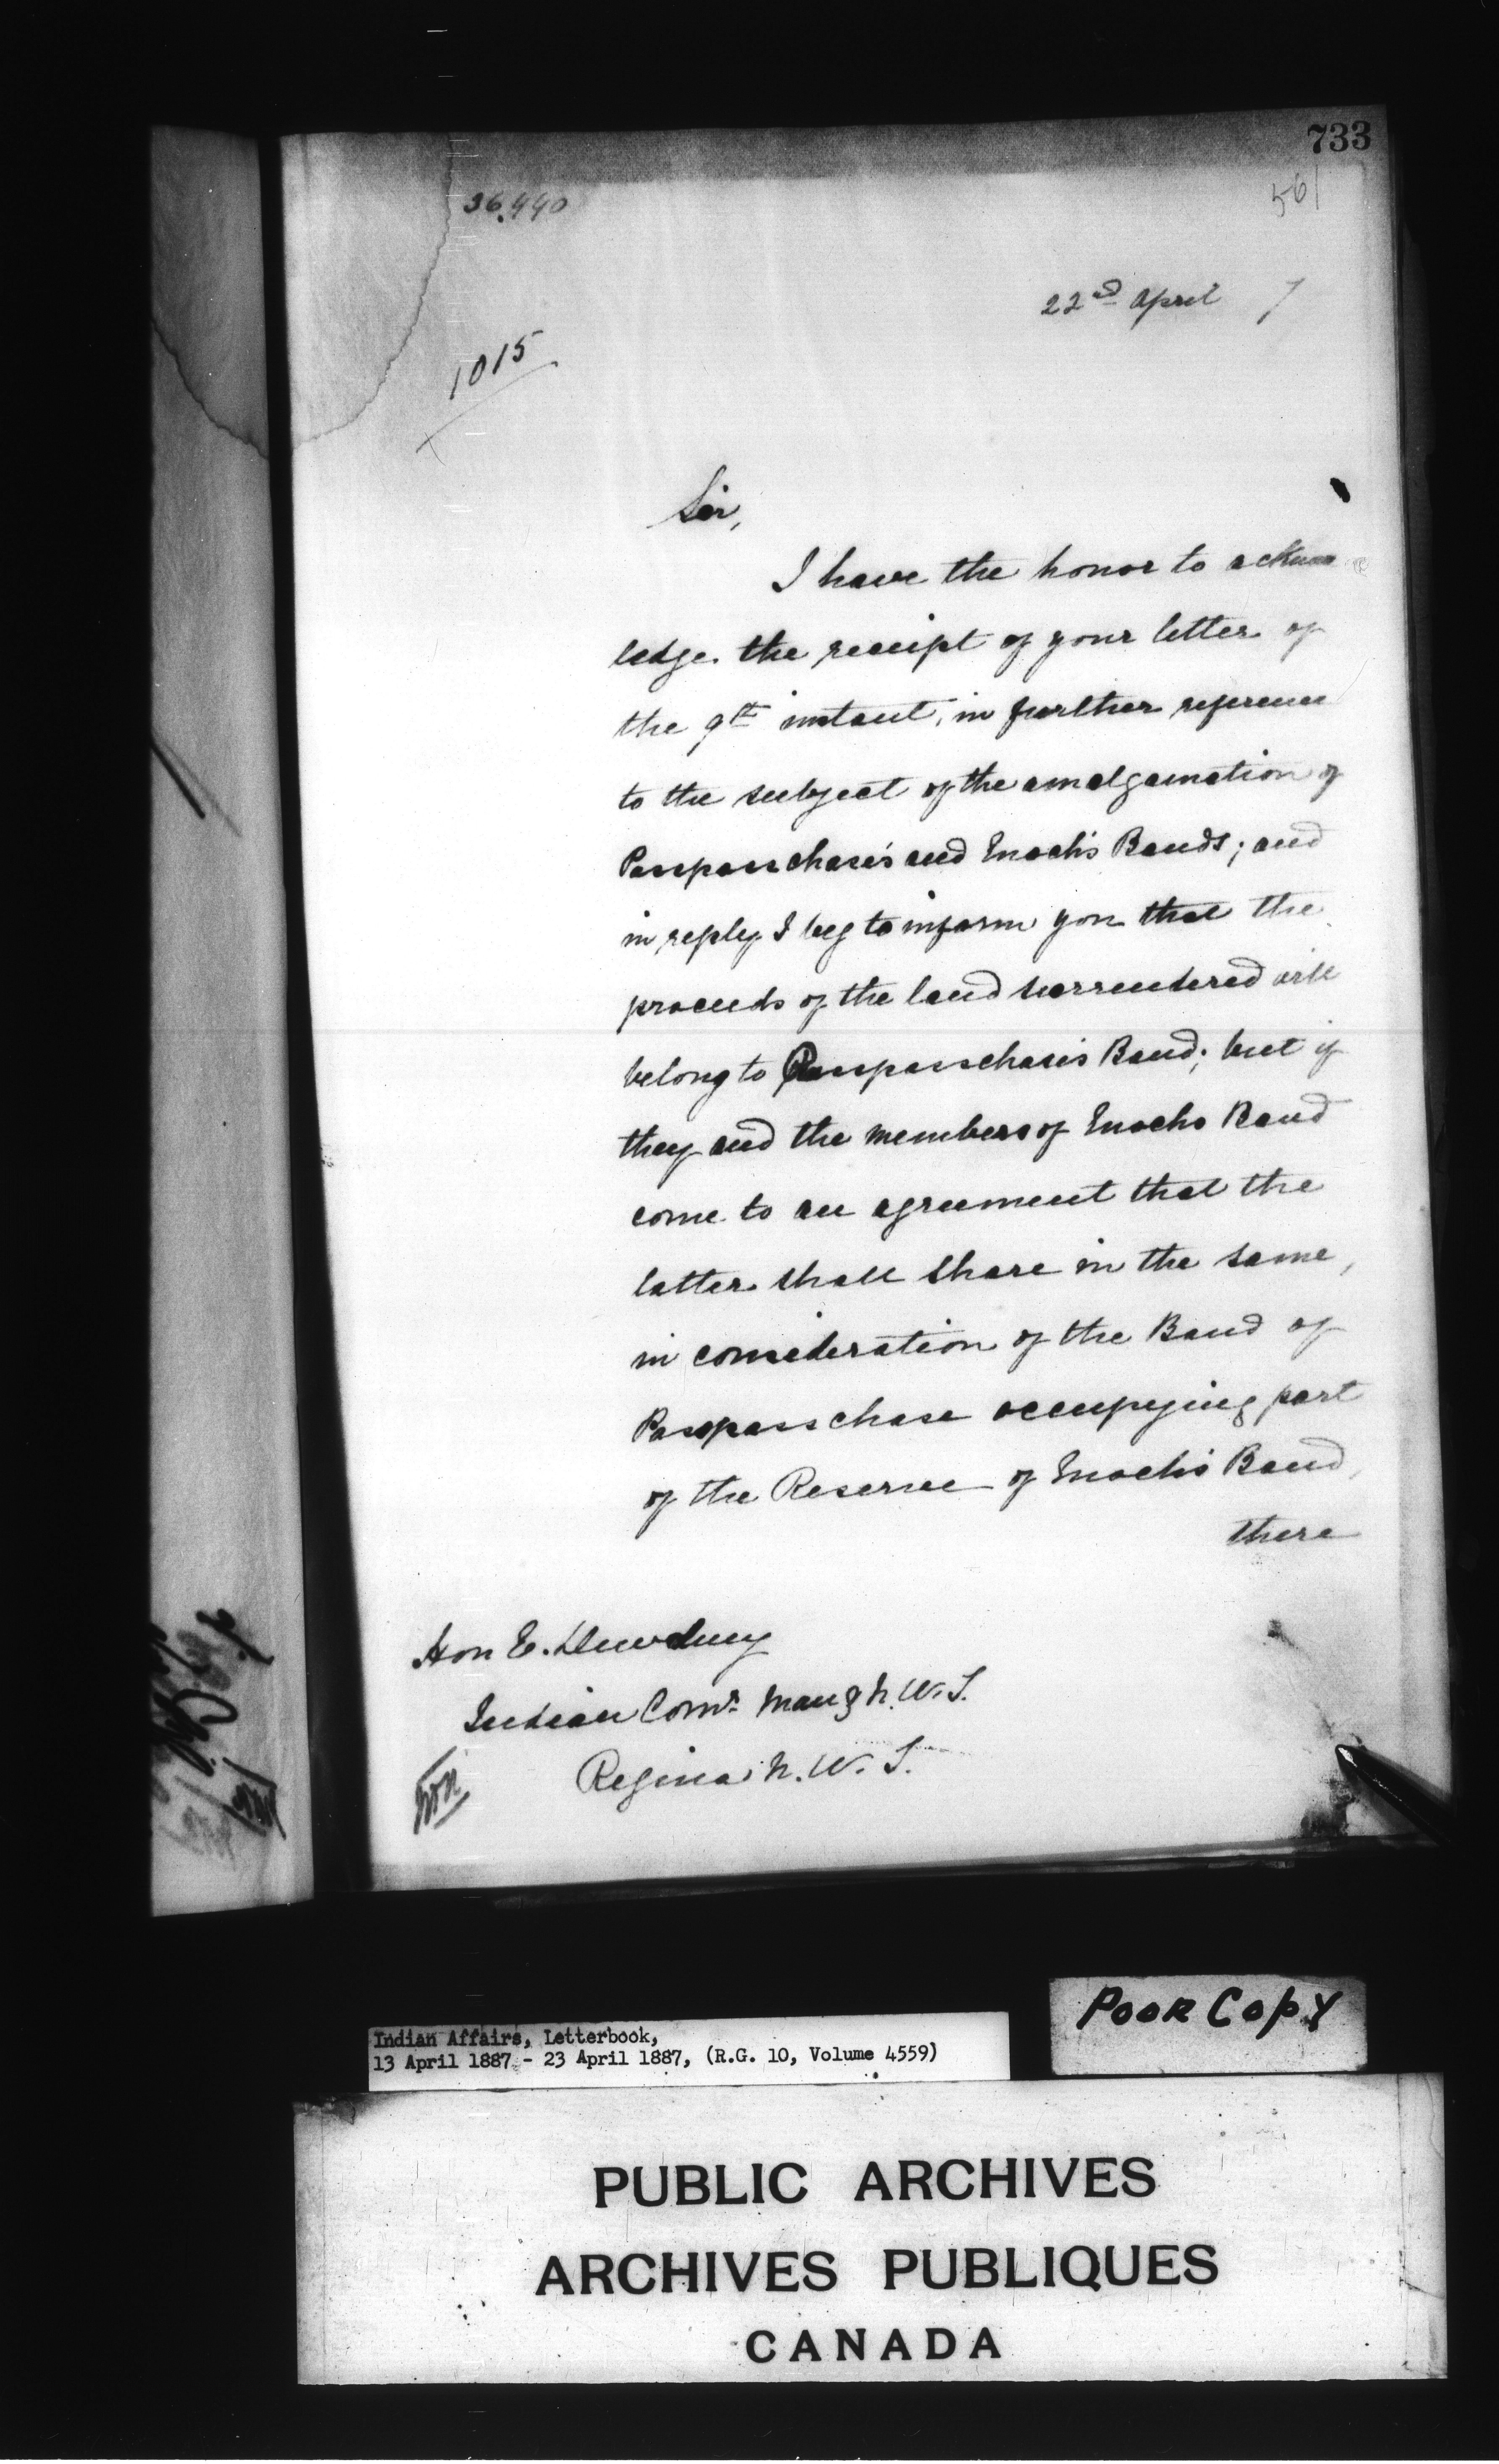 733
561
36.440
22nd April 7
1015
Sir,
I have the honor to acknow
ledge the receipt of your letter of
the 9th instant, in further reference
to the subject of the amalgamation of
Passpasschase's and Enoch's Bands; and
in reply I beg to inform you that the
proceeds of the land surrendered will
belong to Passpasschase's Band; but if
they and the members of Enochs Band
come to an agreement that the
latter shall share in the same,
in consideration of the Band of
Passpasschase occupying part
of the Reserve of Enoch's Band,
there
Hon E. Dewdney
Indian Comr. Man & N.W.T.
Regina N.W.T.
POOR COPY
Indian Affairs, Letterbook,
13 April 1887 - 23 April 1887, (R.G. 10, Volume 4559)
PUBLIC ARCHIVES
ARCHIVES PUBLIQUES
CANADA